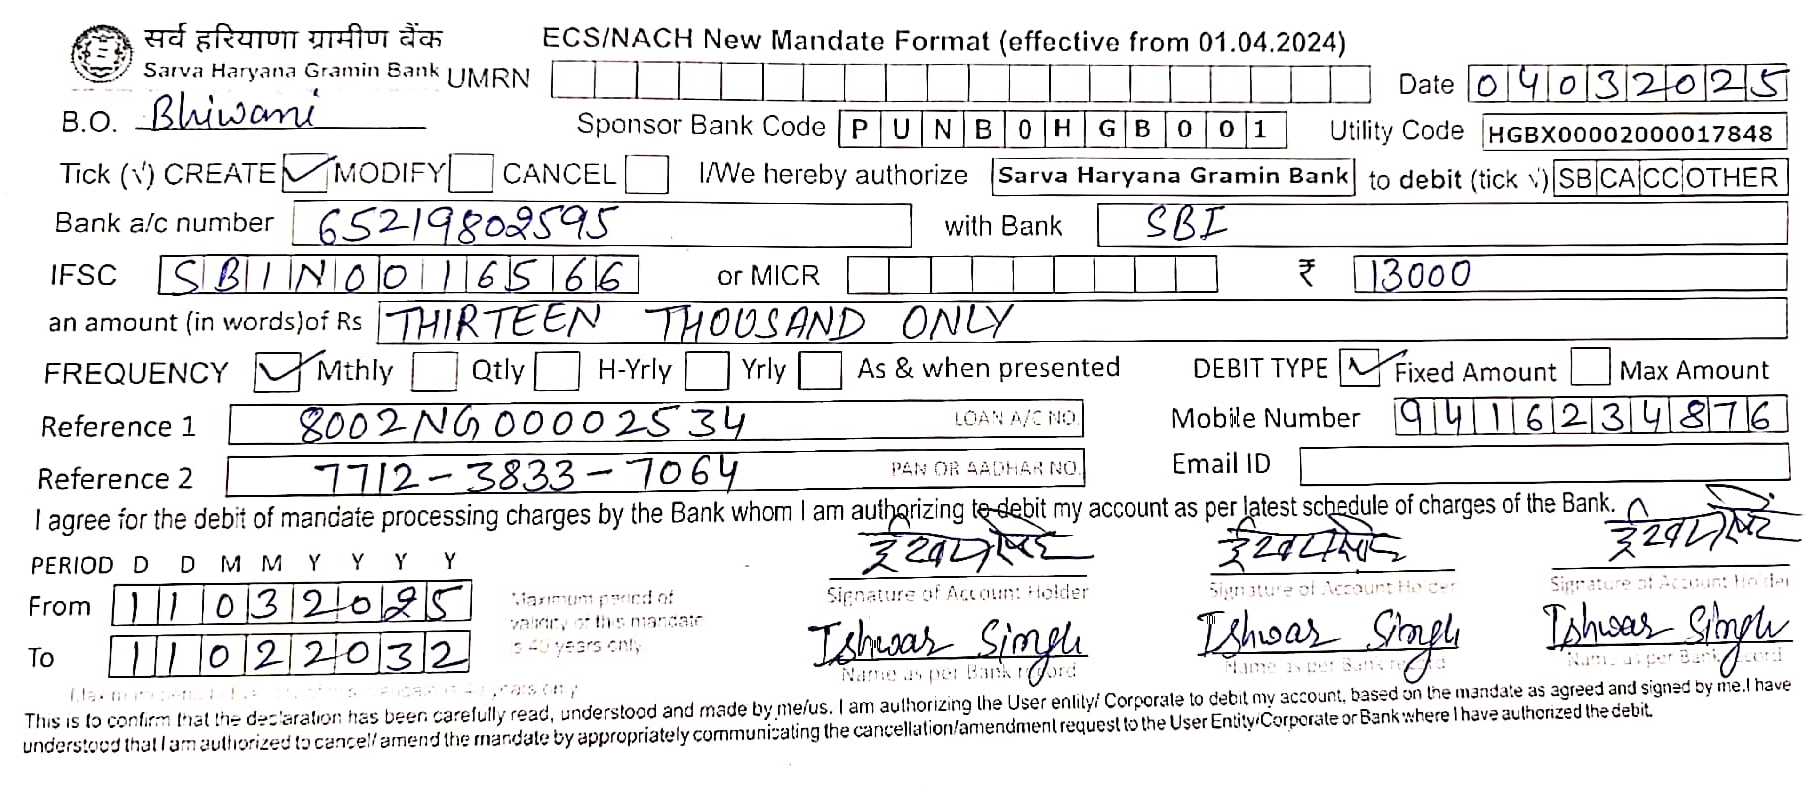 सर्व हरियाणा ग्रामीण बैंक
Sarva Haryana Gramin Bank
ECS/NACH New Mandate Format (effective from 01.04.2024)
UMRN Date 04032025
B.O. Bhiwani Sponsor Bank Code PUNB0HGB001 Utility Code HGBX00002000017848
Tick (√) CREATE ✓ MODIFY CANCEL I/We hereby authorize Sarva Haryana Gramin Bank to debit (tick √) SB CA CC OTHER
Bank a/c number 65219802595 with Bank SBI
IFSC SBIN0016566 or MICR ₹ 13000
an amount (in words)of Rs THIRTEEN THOUSAND ONLY
FREQUENCY ✓ Mthly Qtly H-Yrly Yrly As & when presented DEBIT TYPE ✓ Fixed Amount Max Amount
Reference 1 8002NG00002534 LOAN A/C NO. Mobile Number 9416234876
Reference 2 7712-3833-7064 PAN OR AADHAR NO. Email ID
I agree for the debit of mandate processing charges by the Bank whom I am authorizing to debit my account as per latest schedule of charges of the Bank.
PERIOD D D M M Y Y Y Y
From 11032025
To 11022032
Maximum period of
validity of this mandate
is 40 years only
Signature of Account Holder Signature of Account Holder Signature of Account Holder
Ishwar Singh Ishwar Singh Ishwar Singh
Name as per Bank record Name as per Bank record Name as per Bank record
This is to confirm that the declaration has been carefully read, understood and made by me/us. I am authorizing the User entity/ Corporate to debit my account, based on the mandate as agreed and signed by me.I have
understood that I am authorized to cancel/ amend the mandate by appropriately communicating the cancellation/amendment request to the User Entity/Corporate or Bank where I have authorized the debit.